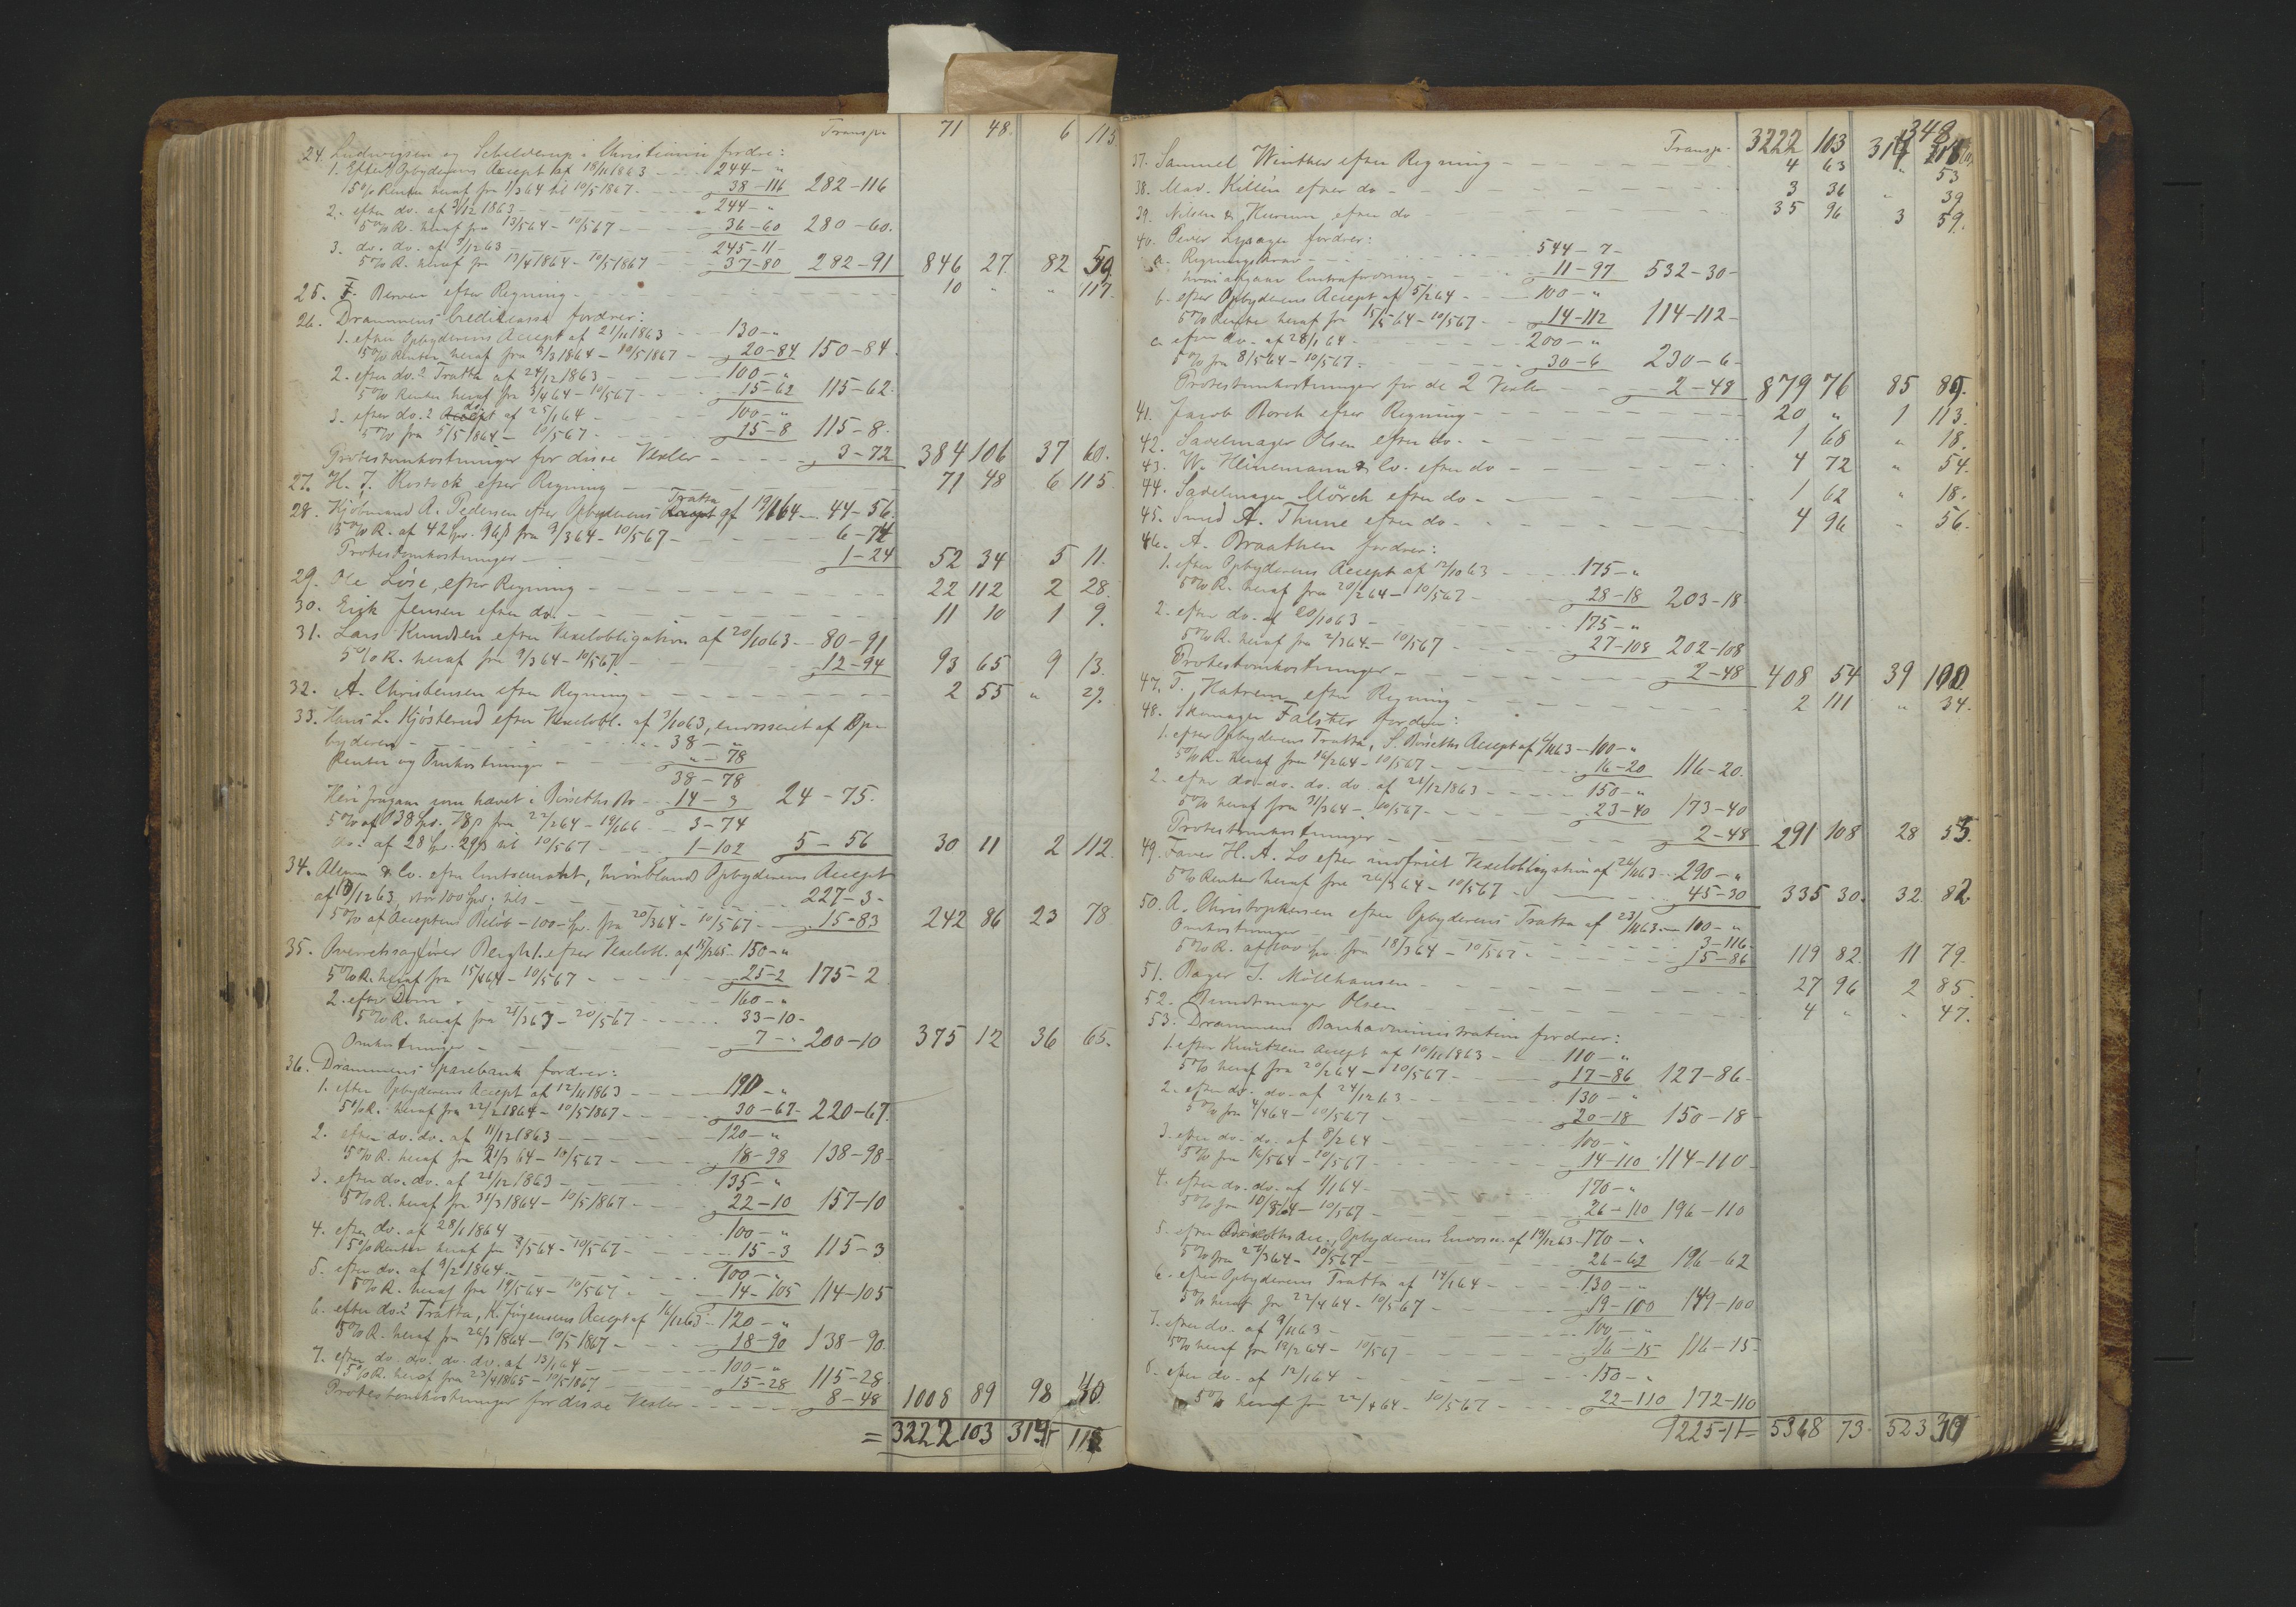 Transp. 71 48. 6 115
24. Ludwigsen og Schelderup i Christiania fordre:
1. Efter Opbyderens Accept af 10/11 1863 - - 244 - "
5% Renter heraf fra 1/3 64 til 10/5 1867 - - 38-116 282-116
2. efter do. af 3/12 1863 - - 244 - "
5% R. heraf fra 13/5 64 - 10/5 67 - - 36-60 280-60.
3. do. do. af 9/12 63 - - 245-11-
5% R. heraf fra 13/4 1864 - 10/5 1867 - - 37-80 282-91 846 27. 82 59
25. F. Berven efter Regning - - 10 " " 117.
26. Drammens Creditcasse fordrer:
1. efter Opbyderens Accept af 21/11 1863 - - 130 - "
5% Renter heraf fra 9/3 1864 - 10/5 1867 - - 20-84 150-84.
2. efter do.s Tratta af 24/12 1863 - - 100 - "
5% Renter heraf fra 3/4 64 - 10/5 67 - - 15-62 115-62.
3. efter do.s Accept do. af 25/1 64 - - 100 - "
5% fra 5/5 1864 - 10/5 67 - - 15-8 115-8.
Protestomkostninger for disse Vexler - - 3-72 384 106 37 60.
27. H. J. Rostock efter Regning - - 71 48 6 115.
28. Kjøbmand A. Pedersen efter Opbyderens Accept Tratta af 19/1 64 - - 44-56.
5% R. af 42 Spd. 96 β fra 9/3 64 - 10/5 67 - - 6-74
Protestomkostninger - - 1-24 52 34 5 11.
29. Ole Löse, efter Regning - - 22 112 2 28.
30. Erik Jensen efter do. - - 11 10 1 9.
31. Lars Knudsen efter Vexelobligation af 20/10 63 - - 80-91
5% R. heraf fra 9/3 64 - 10/5 67 - - 12-94 93 65 9 13.
32. A. Christensen efter Regning - - 2 55 " 29.
33. Hans L. Kjösterud efter Vexelobl. af 3/10 63, endosseret af Op-
byderen - - 38 - "
Renter og Omkostninger - - " - 78
38-78
Heri fragaar som hævet i Böseths Bo - - 14-3 24-75.
5% af 38 Spd. 78 β fra 22/2 64 - 19/1 66 - - 3-74
do. af 28 Spd. 29 β til 10/5 67 - - 1-102 5-56 30 11 2 112.
34. Alum & Co. efter Contocourant, hvoriblandt Opbyderens Accept
af 10/12 63, stor 100 Spd; tils - - 227-3-
5% af Acceptens Beløb - 100 - Spd. fra 20/3 64 - 10/5 67 - - 15-83 242 86 23 78
35. Overretssagfører Bergh 1. efter Vexelobl. af 15/1 65 - 150 - "
5% R. heraf fra 15/1 64 - 10/5 67 - - 25-2 175-2
2. efter Dom - - 160 - "
5% R. heraf fra 21/3 63 - 20/5 67 - - 33-10-
Omkostninger - - 7 - " 200-10 375 12 36 65.
36. Drammens Sparebank fordrer:
1. efter Opbyderens Accept af 12/11 1863 - - 190 - "
5% R. heraf fra 22/2 1864 - 10/5 1867 - - 30-67- 220-67.
2. efter do. do. af 11/12 1863 - - 120 - "
5% R. heraf fra 21/3 64 - 10/5 67 - - 18-98 138-98-
3. efter do. do. af 21/12 1863 - - 135 - "
5% R. heraf fra 31/3 1864 - 10/5 1867 - - 22-10 157-10
4. efter do. af 28/1 1864 - - 100 - "
5% Renter heraf fra 8/5 64 - 10/5 67 - - 15-3 115-3
5. efter do. af 9/2 1864 - - 100 - "
5% R. heraf fra 19/5 64 - 10/5 67 - - 14-105 114-105
6. efter do.s Tratta, K. Jörgensens Accept af 16/12 63 - 120 - "
5% R. heraf fra 26/3 1864 - 10/5 1867 - - 18-90 138-90.
7. efter do. do. do. do. af 13/1 64 - - 100 - "
5% R. heraf fra 23/4 1865 - 10/5 1867 - - 15-28 115-28.
Protestomkostninger for disse Vexler - - 8-48 1008 89 98 40
= 3222 103
348
Transp. 3222 103
37. Samuel Winther efter Regning - - 4 63 " 53
38. Mad. Killén efter do - - 3 36 " 39
39. Nilsen & Hurum efter do - - 35 96 3 59.
40. Peder Lysager fordrer:
a. Regningskrav - - 544-7-
hvori afgaar Contrafordring - - 11-97 532-30-
b. efter Opbyderens Accept af 5/2 64 - - 100 - "
5% Renter heraf fra 15/5 64 - 10/5 67 - - 14-112 114-112-
c. efter do. af 28/1 64 - - 200 - "
5% fra 8/5 64 - 10/5 67 - - 30-6 230-6-
Protestomkostninger for de 2 Vexler - - 2-48 879 76 85 85.
41. Jacob Borch efter Regning - - 20 " 1 113.
42. Sadelmager Olsen efter do. - - 1 68 " 18.
43. W. Heinemann & Co. efter do - - 4 72 " 54.
44. Sadelmager Mörch efter do - - 1 62 " 18.
45. Smed A. Thune efter do - - 4 96 " 56.
46. A. Braathen fordrer:
1. efter Opbyderens Accept af 12/10 63 - - 175 - "
5% R. heraf fra 20/2 64 - 10/5 67 - - 28-18 203-18
2. efter do. af 20/10 63 - - 175 - "
5% R. heraf fra 2/3 64 - 10/5 67 - - 27-108 202-108
Protestomkostninger - - 2-48 408 54 39 100
47. T. Hatrem efter Regning - - 2 111 " 34.
48. Skomager Falster fordrer:
1. efter Opbyderens Tratta, S. Böseths Accept af 6/11 63 - 100 - "
5% R. heraf fra 16/2 64 - 10/5 67 - - 16-20 116-20.
2. efter do. do. do. do. af 21/12 1863 - - 150 - "
5% heraf fra 31/3 64 - 10/5 67 - - 23-40 173-40
Protestomkostninger - - 2-48 291 108 28 55.
49. Farver H. A. Lo efter indfriet Vexelobligation af 26/11 63 - 290 - "
5% Renter heraf fra 26/3 64 - 10/5 67 - - 45-30 335 30. 32 82
50. A. Christophersen efter Opbyderens Tratta af 23/11 63 - 100 - "
Omkostninger - - 3-116-
5% R. af 100 Spd. fra 18/3 64 - 10/5 67 - - 15-86 119 82. 11 79.
51. Bager J. Möllhausen - - 27 96 2 85.
52. Bundtmager Olsen - - 4 " " 47.
53. Drammens Bankadministration fordrer:
1. efter Knutzens Accept af 10/11 1863 - - 110 - "
5% heraf fra 20/2 64 - 10/5 67 - - 17-86 127-86-
2. efter do. do. af 24/12 63 - - 130 - "
5% fra 4/4 64 - 10/5 67 - - 20-18 150-18-
3. efter do. do. af 8/2 64 - - 100 - "
5% fra 16/5 64 - 10/5 67 - - 14-110 114-110-
4. efter do. do. af 1/1 64 - - 170 - "
5% fra 10/3 64 - 10/5 67 - - 26-110 196-110
5. efter Böseths Acc., Opbyderens Endoss. af 19/12 63 - 170 - "
5% fra 27/3 64 - 10/5 67 - - 26-62 196-62
6. efter Opbyderens Tratta af 14/1 64 - - 130 - "
5% heraf fra 22/4 64 - 10/5 67 - - 19-100 149-100
7. efter do. af 9/11 63 - - 100 - "
5% heraf fra 19/2 64 - 10/5 67 - - 16-15 116-15-
8. efter do. af 12/1 64 - - 150 - "
5% heraf fra 22/4 64 - 10/5 67 - - 22-110 172-110
1225-11 = 5368 73. 523 30